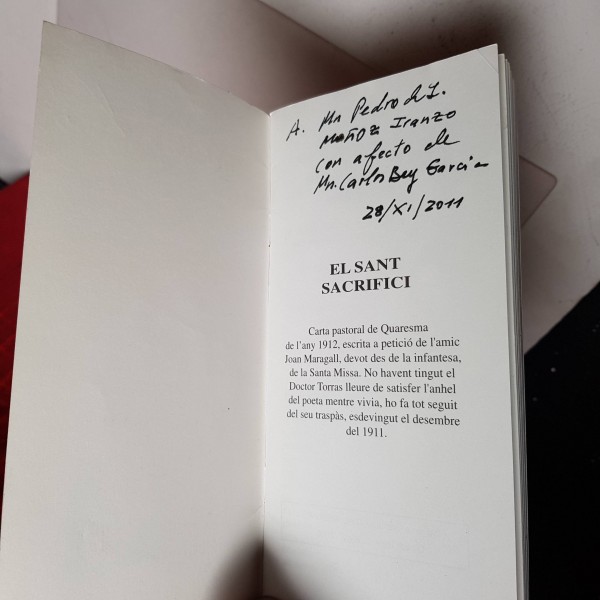 A. Mn Pedro de Y.
Muñoz Iranzo
con afecto de
Mn. Carlos Bey Garcia
28/XI/2011
EL SANT
SACRIFICI
Carta pastoral de Quaresma
de l'any 1912, escrita a petició de l'amic
Joan Maragall, devot des de la infantesa,
de la Santa Missa. No havent tingut el
Doctor Torras lleure de satisfer l'anhel
del poeta mentre vivia, ho fa tot seguit
del seu traspàs, esdevingut el desembre
del 1911.